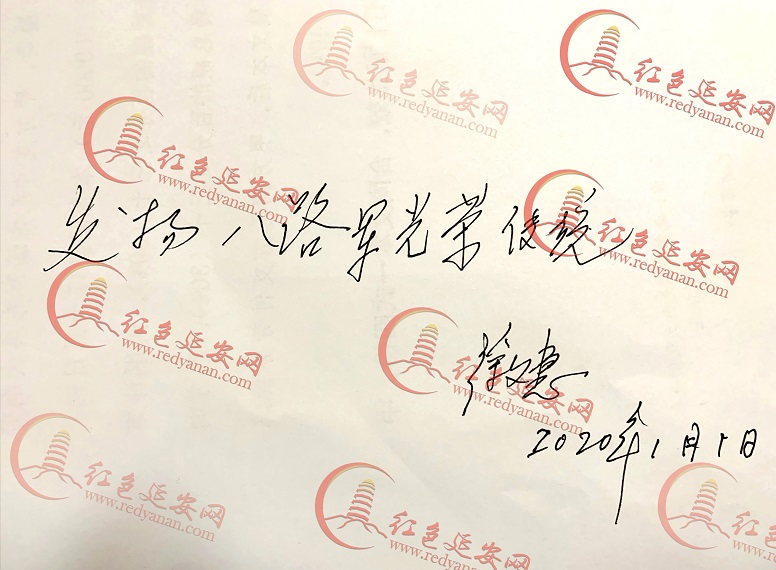 红色延安网
www.redyanan.com
红色延安网
www.redyanan.com
红色延安网
www.redyanan.com
发扬八路军光荣传统
红色延安网
www.redyanan.com
红色延安网
www.redyanan.com
红色延安网
www.redyanan.com
徐文惠
2020年1月1日
红色延安网
www.redyanan.com
红色延安网
www.redyanan.com
红色延安网
www.redyanan.com